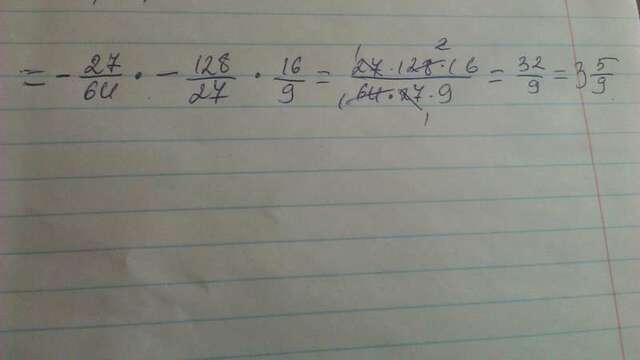 = - 27/64 · - 128/27 · 16/9 = 27·128·16/64·27·9 = 32/9 = 3 5/9